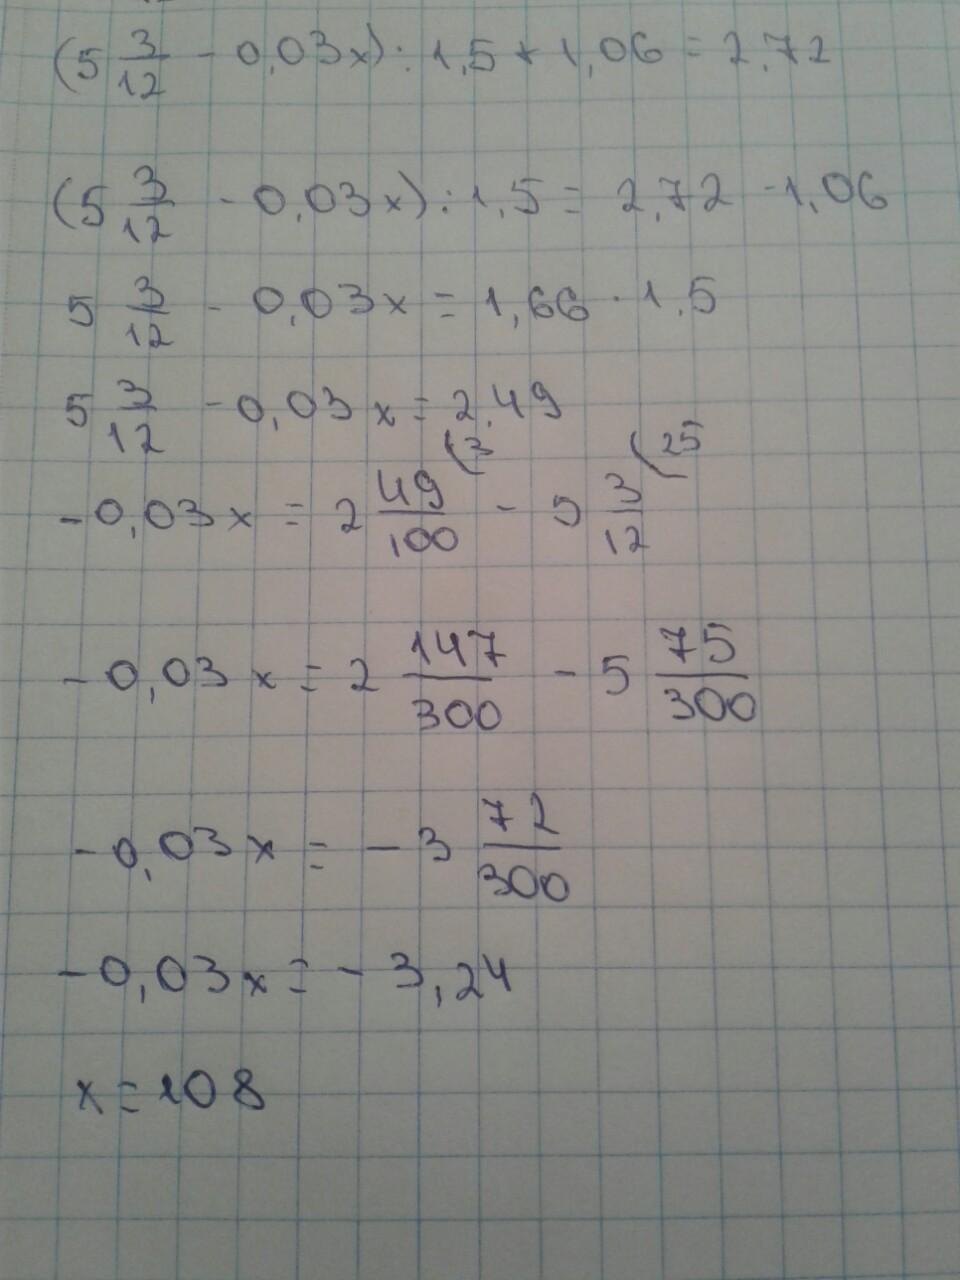 (5 3/12 - 0,03x) : 1,5 + 1,06 = 2,72
(5 3/12 - 0,03x) : 1,5 = 2,72 - 1,06
5 3/12 - 0,03x = 1,66 · 1,5
5 3/12 - 0,03x = 2,49
-0,03x = 2 49/100 (3 - 5 3/12 (25
-0,03x = 2 147/300 - 5 75/300
-0,03x = -3 72/300
-0,03x = -3,24
x = 108